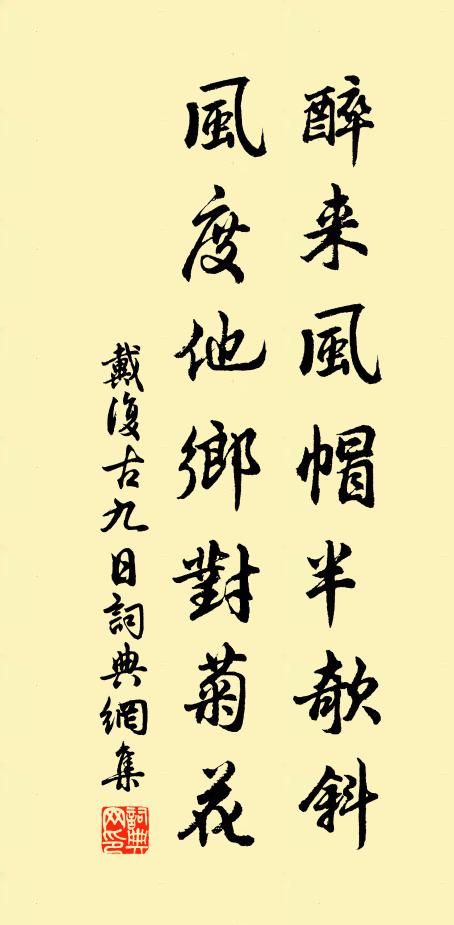 醉来風帽半欹斜
風度他鄉對菊花
戴復古九日詞典網集
詞典網印